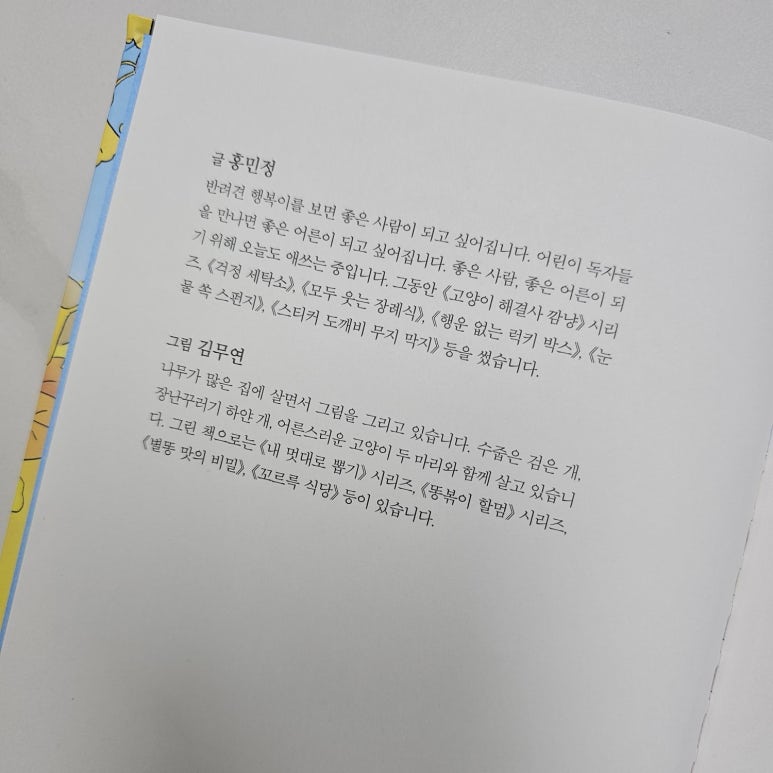 글 홍민정
반려견 행복이를 보면 좋은 사람이 되고 싶어집니다. 어린이 독자들
을 만나면 좋은 어른이 되고 싶어집니다. 좋은 사람, 좋은 어른이 되
기 위해 오늘도 애쓰는 중입니다. 그동안 《고양이 해결사 깜냥》 시리
즈, 《걱정 세탁소》, 《모두 웃는 장례식》, 《행운 없는 럭키 박스》, 《눈
물 쏙 스펀지》, 《스티커 도깨비 무지 막지》 등을 썼습니다.
그림 김무연
나무가 많은 집에 살면서 그림을 그리고 있습니다. 수줍은 검은 개,
장난꾸러기 하얀 개, 어른스러운 고양이 두 마리와 함께 살고 있습니
다. 그린 책으로는 《내 멋대로 뽑기》 시리즈, 《똥볶이 할멈》 시리즈,
《별똥 맛의 비밀》, 《꼬르륵 식당》 등이 있습니다.